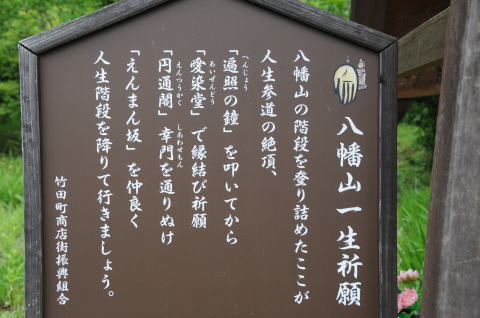 八幡山一生祈願
八幡山の階段を登り詰めたここが
人生参道の絶頂、
「遍照の鐘」を叩いてから
へんじょう
「愛染堂」で縁結び祈願
あいぜんどう
「円通閣」幸門を通りぬけ
えんつうかく しあわせもん
「えんまん坂」を仲良く
人生階段を降りて行きましょう。
竹田町商店街振興組合